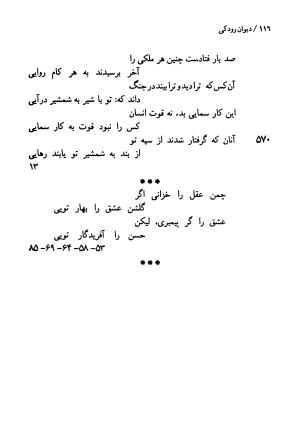 ۱۱۶ / دیوان رودکی
صد بار فتادست چنین هر ملکی را
آخر برسیدند به هر کام روایی
آن کس که ترا دید و ترا بیند در جنگ
داند که: تو با شیر به شمشیر درآیی
این کار سمایی بد، نه قوت انسان
کس را نبود قوت به کار سمایی
آنان که گرفتار شدند از سپه تو ۵۷۰
از بند به شمشیر تو یابند رهایی
۱۳
***
چمن عقل را خزانی اگر
گلشن عشق را بهار تویی
عشق را گر پیمبری، لیکن
حسن را آفریدگار تویی
۵۳- ۵۸- ۶۴- ۶۹- ۸۵
***